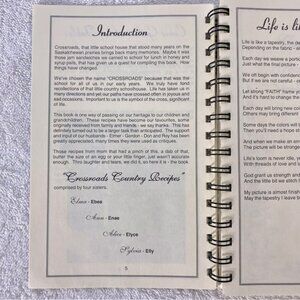 Introduction
Crossroads, that little school house that stood many years on the
Saskatchewan prairies brings back many memories. Maybe it was
those jam sandwiches we carried to school for lunch in honey and
syrup pails, that has given us a quest for compiling this book. How
things have changed.
We've chosen the name "CROSSROADS" because that was the
school for all of us in our early years. We truly have fond
recollections of that little country schoolhouse. Life has taken us in
many directions and yet our paths have crossed often in joyous and
sad occasions. Important to us is the symbol of the cross, significant
of life.
This book is one way of passing on our heritage to our children and
grandchildren. These recipes have become our favourites, some
originally received from family and friends - we say thanks. This has
definitely turned out to be a larger task than anticipated. The support
and input of our husbands - Elmer - Gordon - Don and Rey has been
greatly appreciated, many times they were used as critiques.
Those recipes from mom that had a pinch of this, a dab of that,
butter the size of an egg or your little finger, just wasn't accurate
enough. Thru laughter and tears, we did it, so here it is - the book.
"Crossroads Country Recipes"
comprised by four sisters.
Elma - Elsea
Ann - Enae
Alice - Elyce
Sylvia - Elly
5
Life is li
Life is like a tapestry, the de
Depending on the fabric -
Each day we weave a portio
and what the total picture wi
We oft begin with confiden
But if we do it
Let strong "FAITH" frame yo
The total picture will be
Each day will bring new col
Others may bring
Some days the colors will
Then you'll need a hope s
And when we make an err
The picture will be strange
Life's loom is never idle, y
with threads of
God grant us strength and
And the little bit we stitch
My picture is almost finish
May the tapestry I leave b